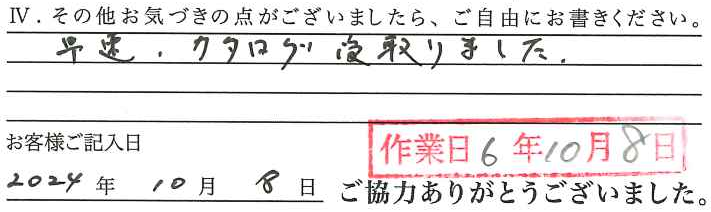 Ⅳ．その他お気づきの点がございましたら、ご自由にお書きください。
早速、カタログ受取りました。
お客様ご記入日
作業日6年10月8日
2024年10月8日
ご協力ありがとうございました。